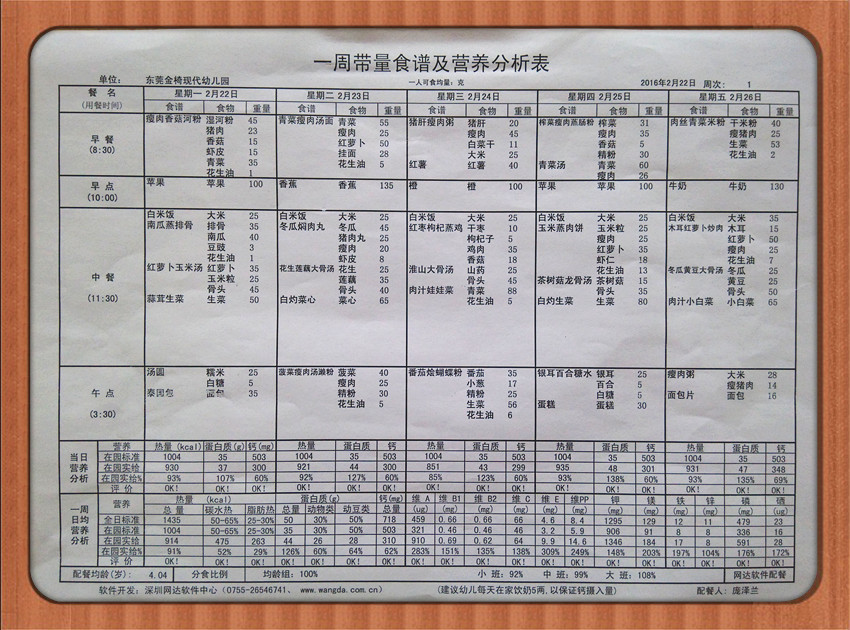 一周带量食谱及营养分析表
单位: 东莞金椅现代幼儿园 一人可食均量: 克 2016年2月22日 周次: 1
餐 名 星期一 2月22日 星期二 2月23日 星期三 2月24日 星期四 2月25日 星期五 2月26日
(用餐时间) 食谱 食物 重量 食谱 食物 重量 食谱 食物 重量 食谱 食物 重量 食谱 食物 重量
早 餐
(8:30)
瘦肉香菇河粉 湿河粉 45 青菜瘦肉汤面 青菜 55 猪肝瘦肉粥 猪肝 20 榨菜瘦肉蒸肠粉 榨菜 31 肉丝青菜米粉 干米粉 40
猪肉 23 瘦肉 25 瘦肉 45 瘦肉 35 瘦猪肉 25
香菇 15 红萝卜 50 白菜干 11 香菇 5 生菜 53
虾皮 15 挂面 28 大米 25 精粉 30 花生油 2
青菜 35 花生油 5 红薯 红薯 40 青菜汤 青菜 60
花生油 1 瘦肉 26
早 点
(10:00)
苹果 苹果 100 香蕉 香蕉 135 橙 橙 100 苹果 苹果 100 牛奶 牛奶 130
中 餐
(11:30)
白米饭 大米 25 白米饭 大米 25 白米饭 大米 25 白米饭 大米 25 白米饭 大米 35
南瓜蒸排骨 排骨 35 冬瓜焖肉丸 冬瓜 45 红枣枸杞蒸鸡 干枣 10 玉米蒸肉饼 玉米粒 25 木耳红萝卜炒肉 木耳 15
南瓜 40 猪肉丸 25 枸杞子 5 瘦肉 25 红萝卜 50
豆豉 3 瘦肉 20 鸡肉 35 红萝卜 35 瘦肉 25
花生油 1 虾皮 8 香菇 18 虾仁 18 花生油 7
红萝卜玉米汤 红萝卜 35 花生莲藕大骨汤 花生 25 淮山大骨汤 山药 25 花生油 13 冬瓜黄豆大骨汤 冬瓜 25
玉米粒 25 莲藕 35 骨头 45 茶树菇龙骨汤 茶树菇 15 黄豆 25
骨头 45 骨头 40 肉汁娃娃菜 青菜 88 骨头 35 骨头 50
蒜茸生菜 生菜 50 白灼菜心 菜心 65 花生油 5 白灼生菜 生菜 80 肉汁小白菜 小白菜 65
午 点
(3:30)
汤圆 糯米 25 菠菜瘦肉汤濑粉 菠菜 40 番茄烩蝴蝶粉 番茄 35 银耳百合糖水 银耳 25 瘦肉粥 大米 28
白糖 5 瘦肉 25 小葱 17 百合 5 瘦猪肉 14
面包 35 精粉 30 精粉 25 白糖 5 面包片 面包 16
花生油 5 生菜 56 蛋糕 蛋糕 30
花生油 6
当日营养分析
营养 热量(kcal) 蛋白质(g) 钙(mg) 热量 蛋白质 钙 热量 蛋白质 钙 热量 蛋白质 钙 热量 蛋白质 钙
在园标准 1004 35 503 1004 35 503 1004 35 503 1004 35 503 1004 35 503
在园实给 930 37 300 921 44 300 851 43 299 935 48 301 931 47 348
在园实给% 93% 107% 60% 92% 127% 60% 85% 123% 60% 93% 138% 60% 93% 135% 69%
评 价 OK! OK! OK! OK! OK! OK! OK! OK! OK! OK! OK! OK! OK! OK! OK!
一周日均营养分析
营养 热量 (kcal) 蛋白质(g) 钙(mg) 维 A 维 B1 维 B2 维 C 维 E 维PP 钾 镁 铁 锌 磷 硒
总 量 碳水热 脂肪热 总量 动物类 动豆类 总量 (ug) (mg) (mg) (mg) (mg) (mg) (mg) (mg) (mg) (mg) (mg) (ug)
全日标准 1435 50-65% 25-30% 50 30% 50% 718 459 0.66 0.66 66 4.6 8.4 1295 129 12 11 479 23
在园标准 1004 50-65% 25-30% 35 30% 50% 503 321 0.46 0.46 46 3.2 5.9 906 91 8 8 336 16
在园实给 914 475 263 44 26 28 310 910 0.69 0.62 64 9.9 14.6 1346 184 17 8 591 28
在园实给% 91% 52% 29% 126% 60% 64% 62% 283% 151% 135% 138% 309% 249% 148% 203% 197% 104% 176% 172%
评 价 OK! OK! OK! OK! OK! OK! OK! OK! OK! OK! OK! OK! OK! OK! OK! OK! OK! OK! OK!
配餐均龄(岁): 4.04 分食比例 均龄组: 100% 小 班: 92% 中 班: 99% 大 班: 108% 网达软件配餐
软件开发: 深圳网达软件中心 (0755-26546741、 www.wangda.com.cn) (建议幼儿每天在家饮奶5两,以保证钙摄入量) 配餐人: 庞泽兰